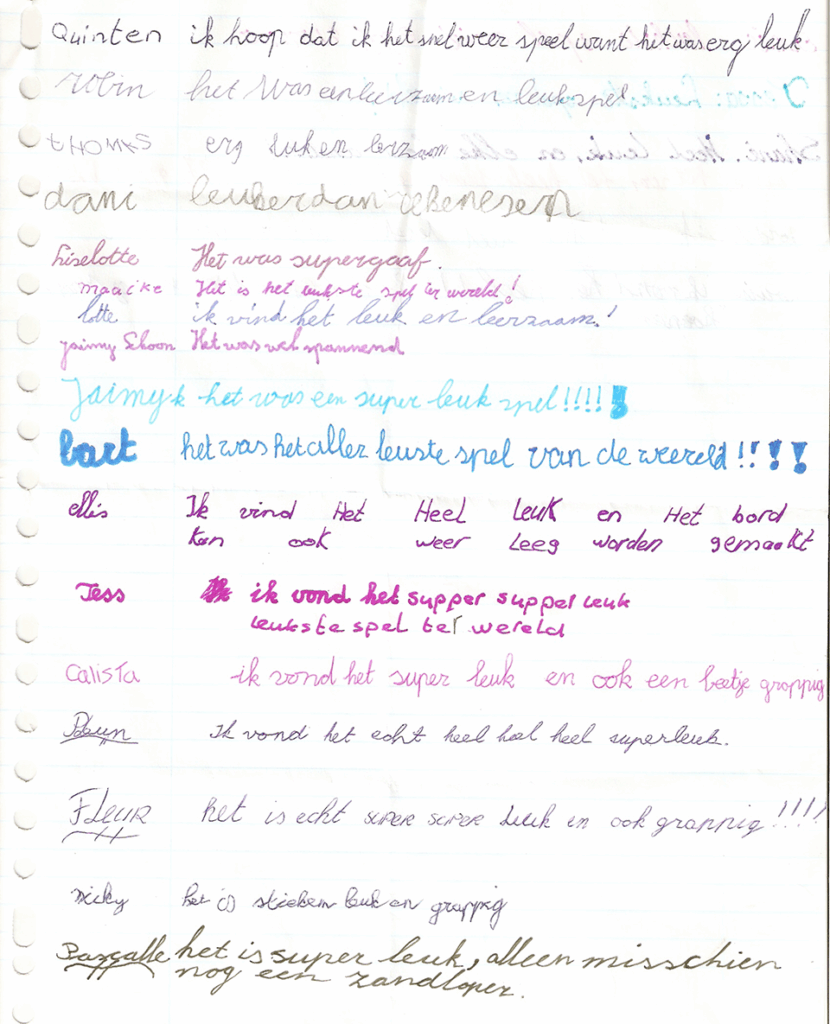 Quinten ik hoop dat ik het snel weer speel want hit was erg leuk
Robin het was een leerzaam en leuk spel
THOMAS erg leuk en lerzaam
dani leuker dan
Liselotte Het was supergaaf.
maaike Het is het leukste spel ter wereld!
lotte ik vind het leuk en leerzaam!
Jaimy Schoon Het was wel spannend
Jaimy k het was een super leuk spel!!!!!
bart het was het aller leuste spel van de weereld!!!!
ellis Ik vind Het Heel leuk en Het bord
kan ook weer leeg worden gemaakt
Tess ik vond het supper supper leuk
leukste spel ter wereld
Calista ik vond het super leuk en ook een beetje grappig
Pleun Ik vond het echt heel heel heel superleuk.
Fleur het is echt super super leuk en ook grappig!!!!
nicky het is stiekem leuk en grappig
Pascalle het is super leuk, alleen misschien
nog een zandloper.